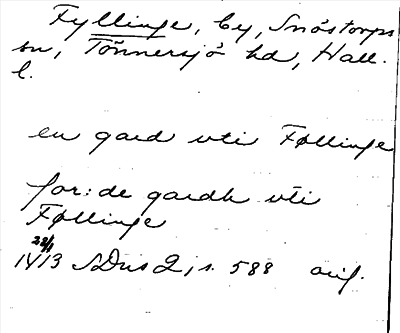 Fyllinge, by, Snöstorps
sn, Tönnersjö hd, Hall.
l.
en gard vti Føllinge
for: de gardh vti
Føllinge
23/1
1413 SDns 2, s. 588 orig.